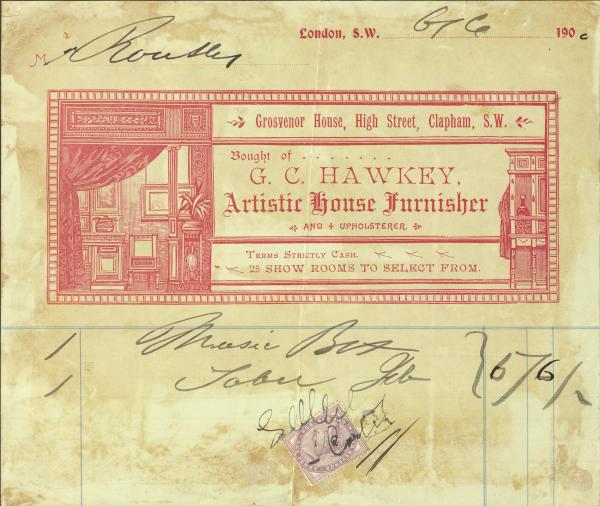 London, S.W. 6/6 190c
Mr Routley
Grosvenor House, High Street, Clapham, S.W.
Bought of . . . . . . .
G. C. HAWKEY,
Artistic House Furnisher
AND UPHOLSTERER.
TERMS STRICTLY CASH.
25 SHOW ROOMS TO SELECT FROM.
1 Music Box
1 } 5/6/-